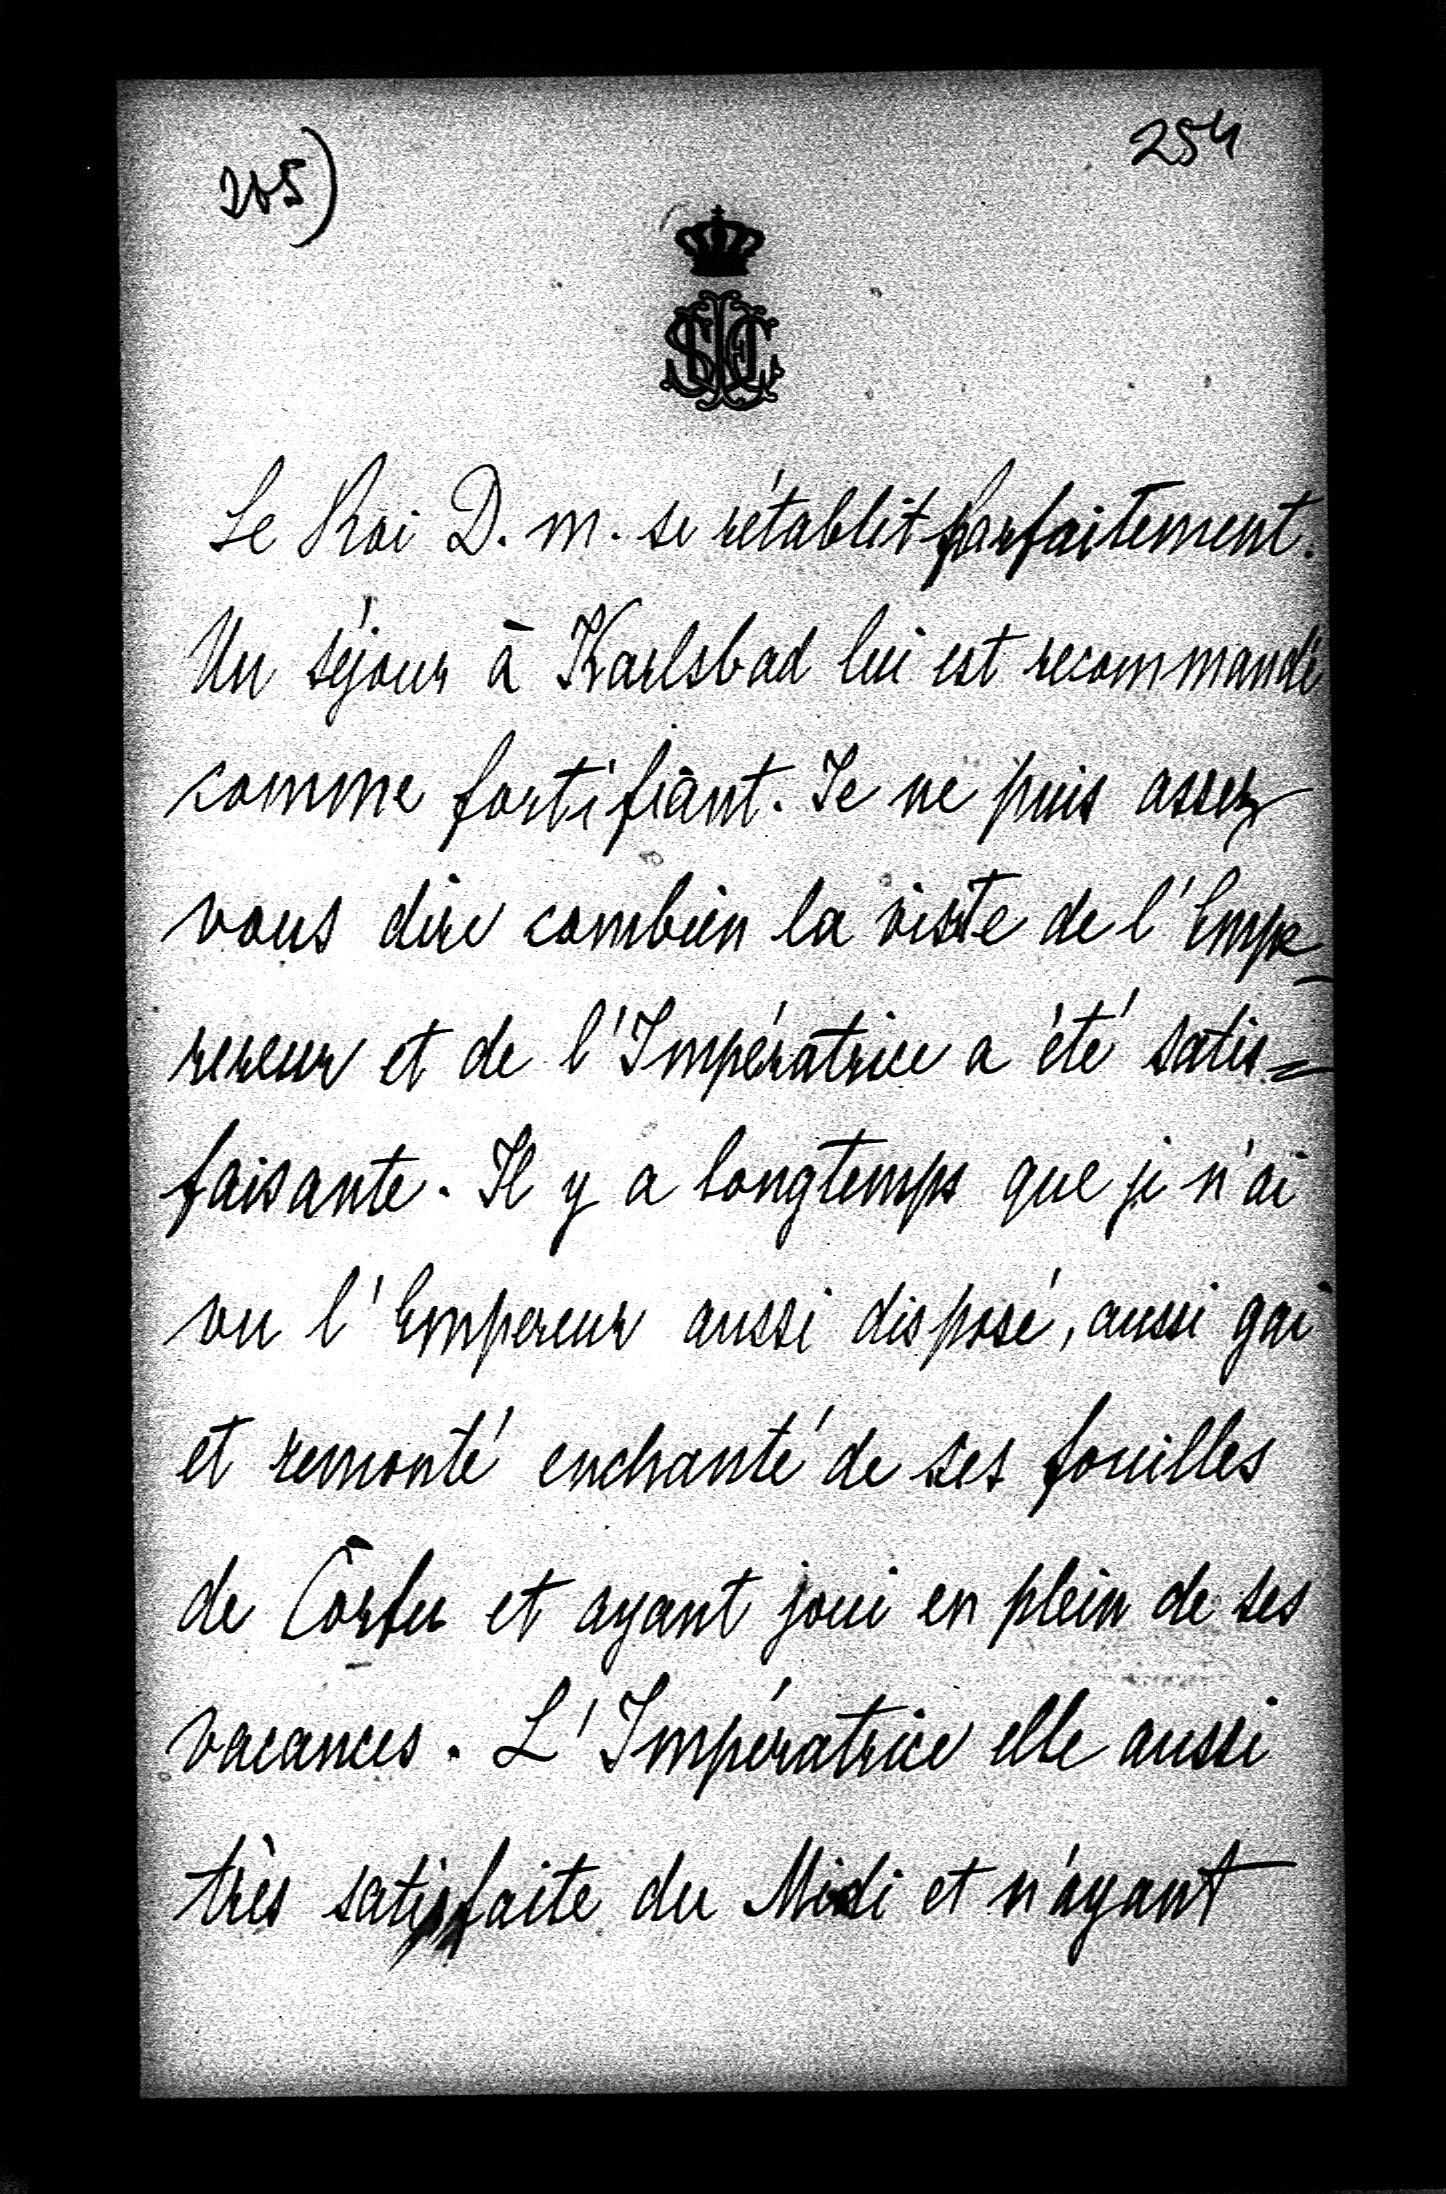 205)
254
Le Roi D. m. se rétablit parfaitement.
Un séjour à Karlsbad lui est recommandé
comme fortifiant. Je ne puis assez
vous dire combien la visite de l'Empe-
rereur et de l'Impératrice a été satis=
faisante. Il y a longtemps que je n'ai
vu l'Empereur aussi disposé, aussi gai
et remonté enchanté de ses fouilles
de Corfu et ayant joui en plein de ses
vacances. L'Impératrice elle aussi
très satisfaite du Midi et n'ayant